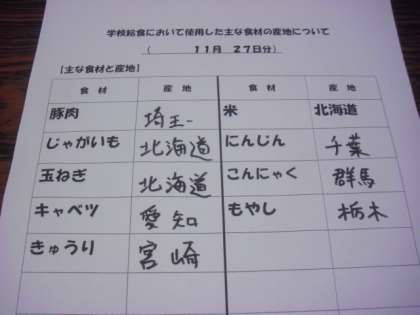 学校給食において使用した主な食材の産地について
（　　　11月　27日分）
[主な食材と産地]
食材　産地　食材　産地
豚肉　埼玉　米　北海道
じゃがいも　北海道　にんじん　千葉
玉ねぎ　北海道　こんにゃく　群馬
キャベツ　愛知　もやし　栃木
きゅうり　宮崎